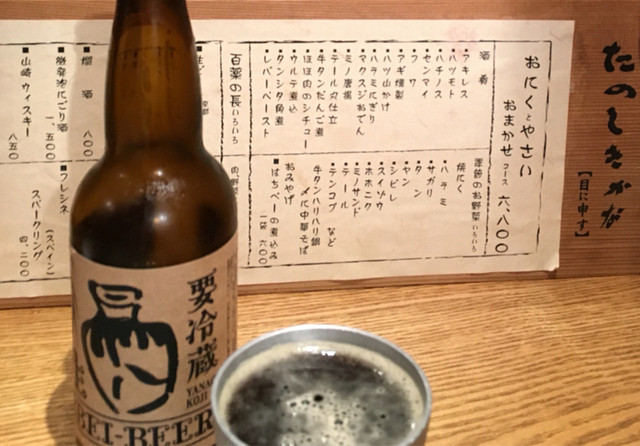 たのしきかな
【目に申す】
おにくとやさい
おまかせコース 六、八〇〇
酒肴
・アキレス
・ハツモト
・ハチノス
・センマイ
・フワ
・アギ燻製
・ハツ山かけ
・ハラミにぎり
・マクスジおでん
・ミノ唐揚
・テール丸仕立
・牛タンだんご煮
・ほほ肉のシチュー
・ウルテ煮込
・タンシタ角煮
・レバーペースト
季節のお野菜いろいろ
焼にく
・ハラミ
・サガリ
・タン
・ヤン
・シビレ
・スイゾウ
・ホホニク
・ミノサンド
・テール
・テンコブ など
牛タンハリハリ鍋
〆に中華そば
おみやげ
・はちべーの煮込み
一袋 六〇〇
百薬の長いろいろ
燗酒 八〇〇
一、五〇〇
・山崎ウィスキー 八五〇
・フレシネ
(スペイン)
スパークリング
四、二〇〇
要冷蔵
YANAG
KOJI
BEI-BEER